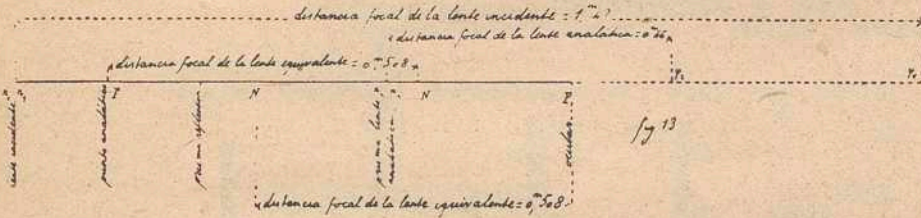 distancia focal de la lente incidente = 1,
distancia focal de la lente analatica = 0,
distancia focal de la lente equivalente = 0,m508
P N N P
lente incidente
punto analático
prisma reflector
prisma lente
analatica
ocular
fig 13
distancia focal de la lente equivalente = 0,m508